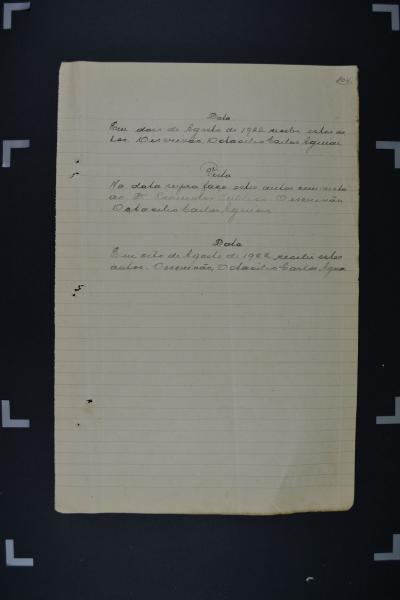 Data
Em dois de Agosto de 1922 recebi estes au
tos. O escrivão, Octacilio Carlos Aguiar
Vista
Na data supra faço estes autos com vista
ao Dr Promotor Publico. O escrivão
Octacilio Carlos Aguiar
Data
Em oito de Agosto de 1922 recebi estes
autos. O escrivão, Octacilio Carlos Aguiar